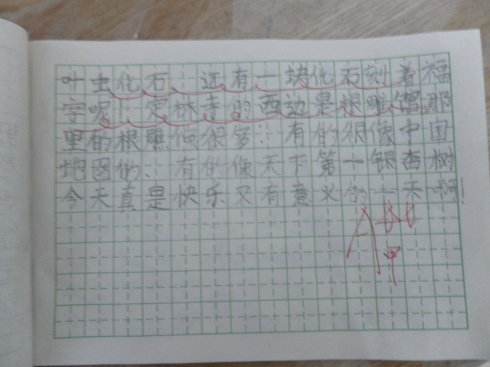 叶虫化石，还有一块化石刻着福
字呢！定林寺的西边是根雕馆那
里的根雕也很多，有的很像中国
地图的，有的像天下第一银杏树
今天真是快乐又有意义的一天啊！